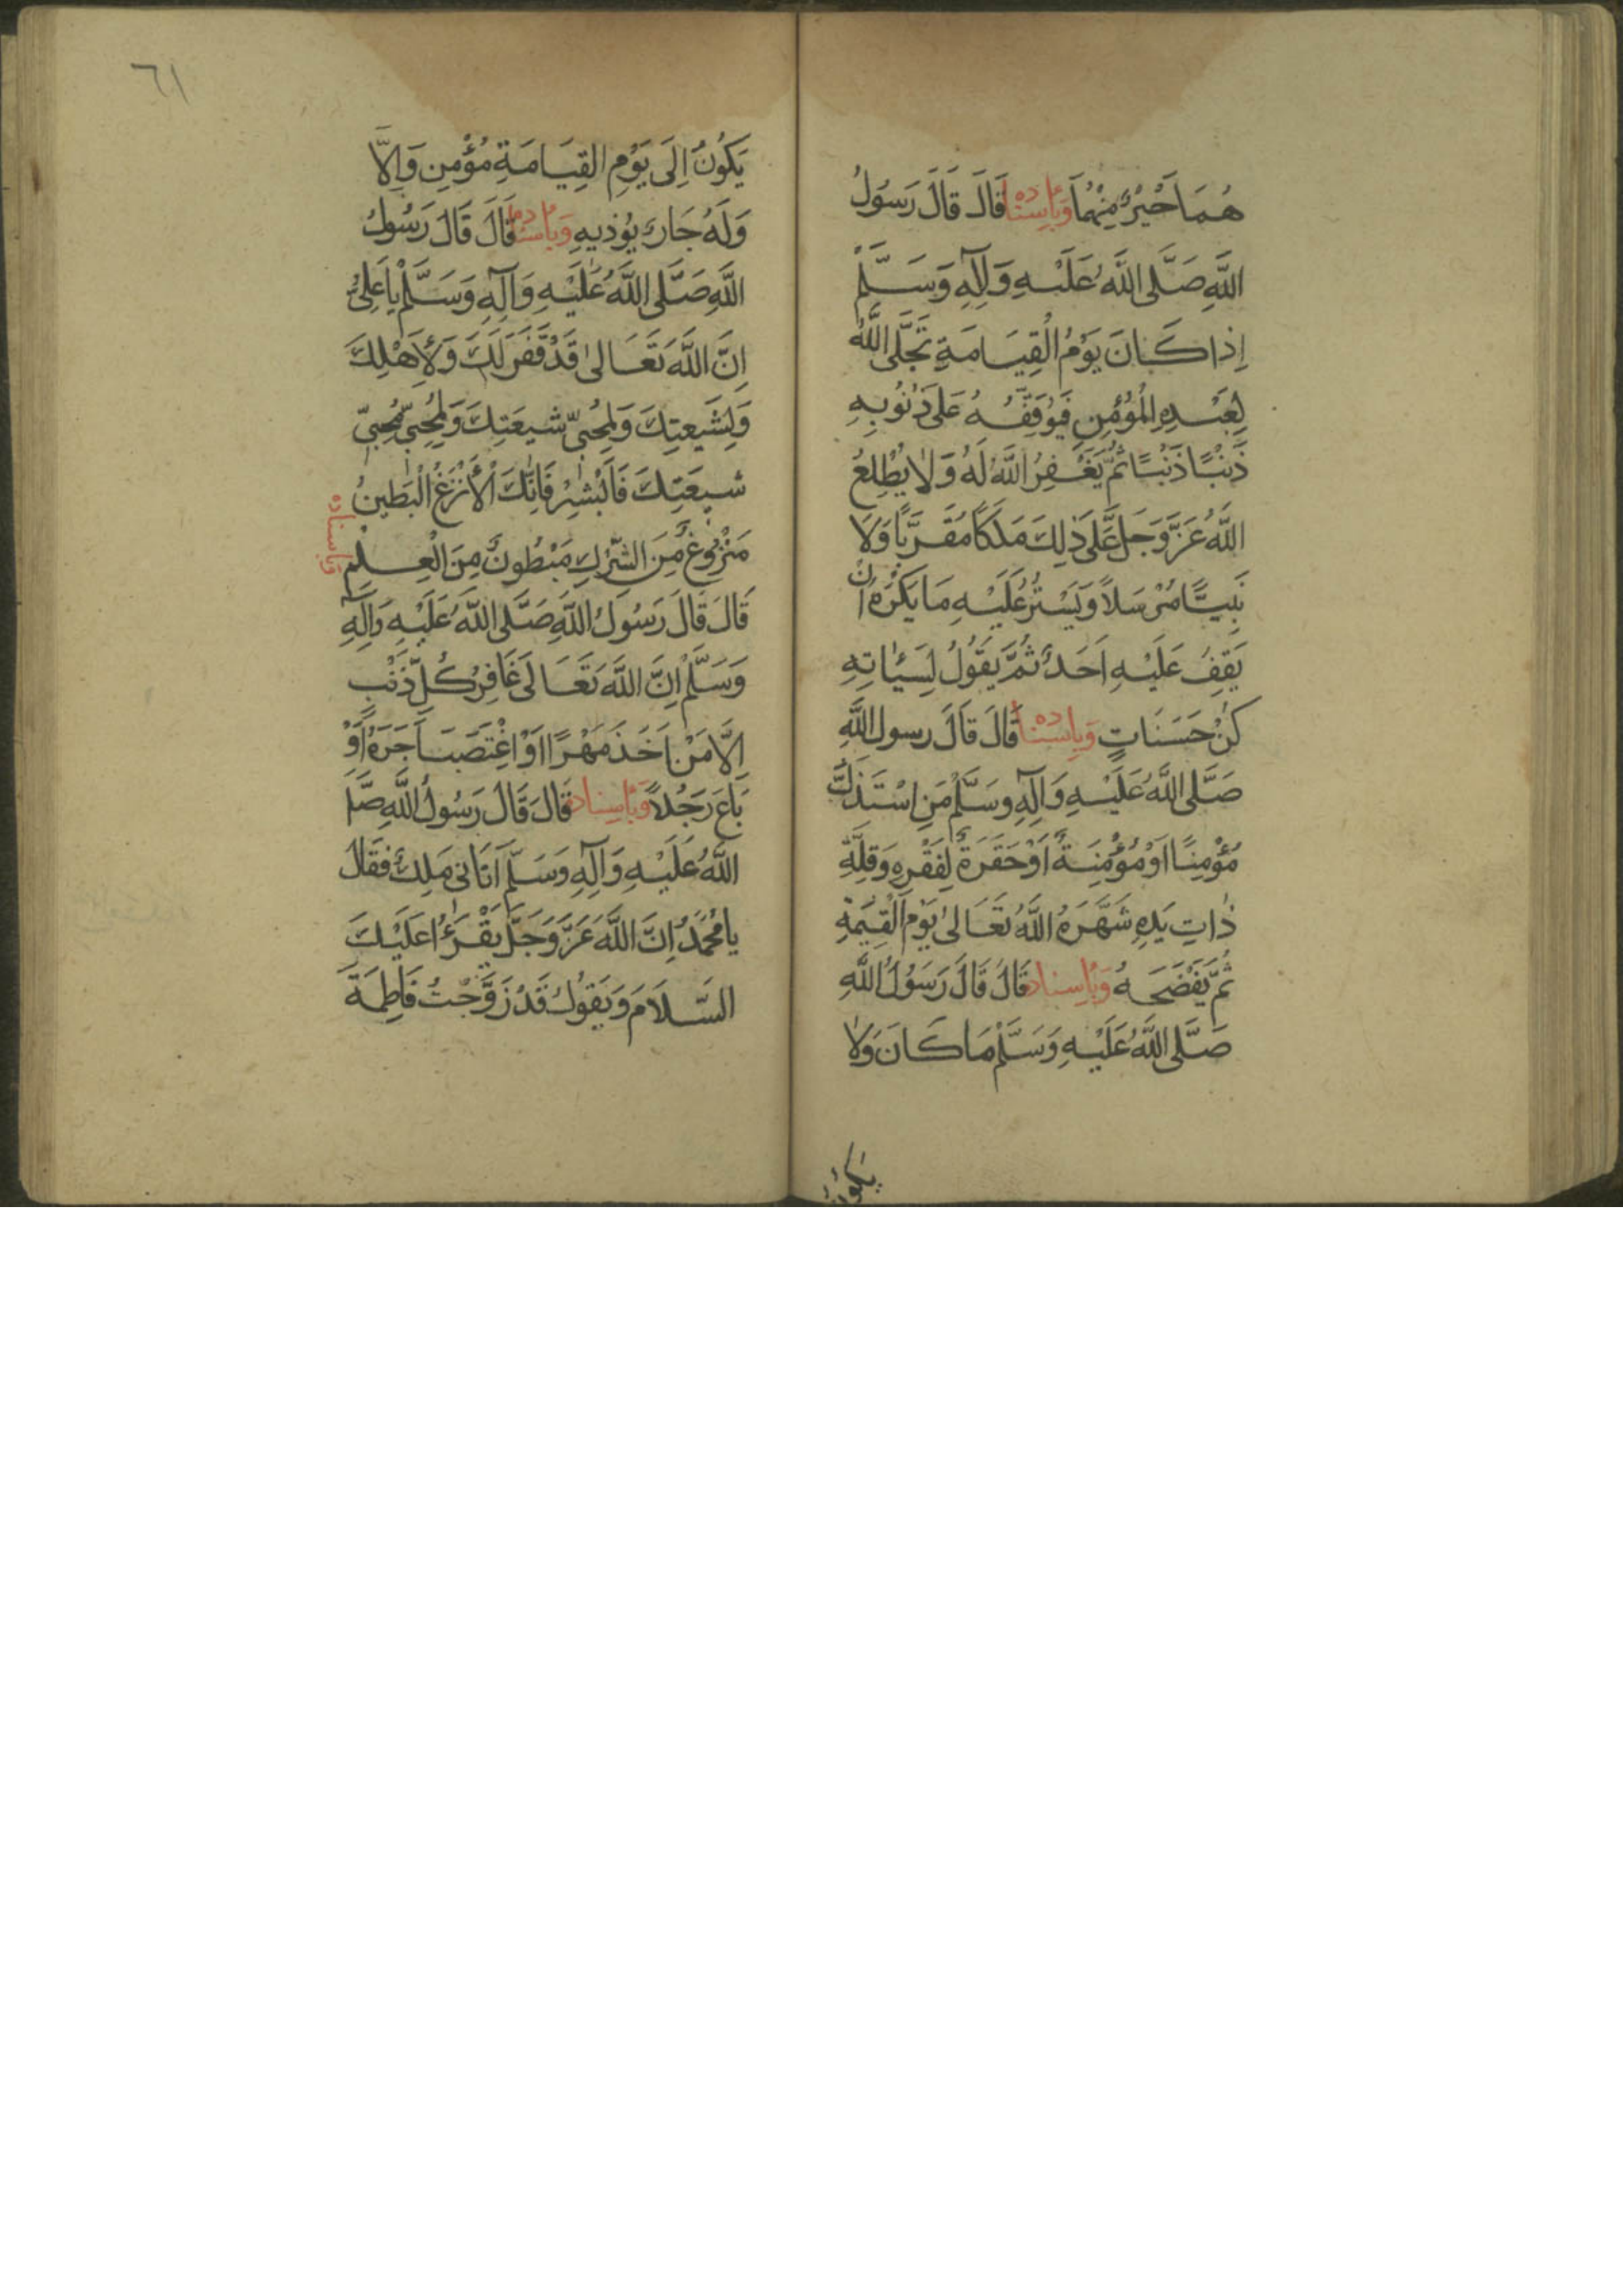 هُمَا خَيْرٌ مِنْهُمَا وَبِاِسْنَادِهِ قَالَ قَالَ رَسُولُ
اللَّهِ صَلَّى اللَّهُ عَلَيْهِ وَآلِهِ وَسَلَّمْ
اِذَا كَانَ يَوْمُ الْقِيَامَةِ تَجَلَّى اللَّهُ
لِعَبْدِهِ الْمُؤْمِنِ فَيُوَقِّفُهُ عَلَى ذُنُوبِهِ
ذَنْبًا ذَنْبًا ثُمَّ يَغْفِرُ اللَّهُ لَهُ وَلَا يُطْلِعُ
اللَّهُ عَزَّ وَجَلَّ عَلَى ذٰلِكَ مَلَكًا مُقَرَّبًا وَلَا
نَبِيًّا مُرْسَلًا وَيَسْتُرُ عَلَيْهِ مَا يَكْرَهُ اَنْ
يَقِفَ عَلَيْهِ اَحَدٌ ثُمَّ يَقُولُ لِسَيِّئَاتِهِ
كُنْ حَسَنَاتٍ وَبِاِسْنَادِهِ قَالَ قَالَ رسول اللَّهِ
صَلَّى اللَّهُ عَلَيْهِ وَآلِهِ وَسَلَّمْ مَنِ اسْتَذَلَّ
مُؤْمِنًا اَوْ مُؤْمِنَةً اَوْ حَقَرَهُ لِفَقْرِهِ وَقِلَّةِ
ذَاتِ يَدِهِ شَهَّرَهُ اللَّهُ تَعَالىٰ يَوْمَ الْقِيٰمَةِ
ثُمَّ يَفْضَحُهُ وَبِاِسْنَادِهِ قَالَ قَالَ رَسُولُ اللَّهِ
صَلَّى اللَّهُ عَلَيْهِ وَسَلَّمْ مَا كَانَ وَلَا
يَكُونُ
٦١
يَكُونُ اِلَى يَوْمِ الْقِيَامَةِ مُؤْمِنٌ وَاِلَّا
وَلَهُ جَارٌ يُؤذِيهِ وَبِاِسْنَادِهِ قَالَ قَالَ رَسُولُ
اللَّهِ صَلَّى اللَّهُ عَلَيْهِ وَآلِهِ وَسَلَّمْ يَا عَلِيُّ
اِنَّ اللَّهَ تَعَالىٰ قَدْ غَفَرَ لَكَ وَلِاَهْلِكَ
وَلِشِيعَتِكَ وَلِمُحِبّي شيعَتِكَ وَلِمُحِبّي مُحِبّي
شيعَتِكَ فَاَبْشِرْ فَاِنَّكَ الْأَنْزَعُ الْبَطِينُ
مَنْزُوعٌ مِنَ الشِّرْكِ مَبْطُونٌ مِنَ الْعِلْمِ وباسناده
قَالَ قَالَ رَسُولُ اللَّهِ صَلَّى اللَّهُ عَلَيْهِ وَآلِهِ
وَسَلَّمْ اِنَّ اللَّهَ تَعَالَى غَافِرُ كُلِّ ذَنْبٍ
اِلَّا مَنْ اَخَذَ مَهْرًا اَوْ اغْتَصَبَ اَجْرَهُ اَوْ
بَاعَ رَجُلًا وَبِاِسْنَادِهِ قَالَ قَالَ رَسُولُ اللَّهِ صَلَّى
اللَّهُ عَلَيْهِ وَآلِهِ وَسَلَّمَ اَتَانِي مَلَكٌ فَقَالَ
يَا مُحَمَّدُ اِنَّ اللَّهَ عَزَّ وَجَلَّ يَقْرَؤُا عَلَيْكَ
السَّلَامَ وَيَقُولُ قَدْ زَوَّجْتُ فَاطِمَةَ